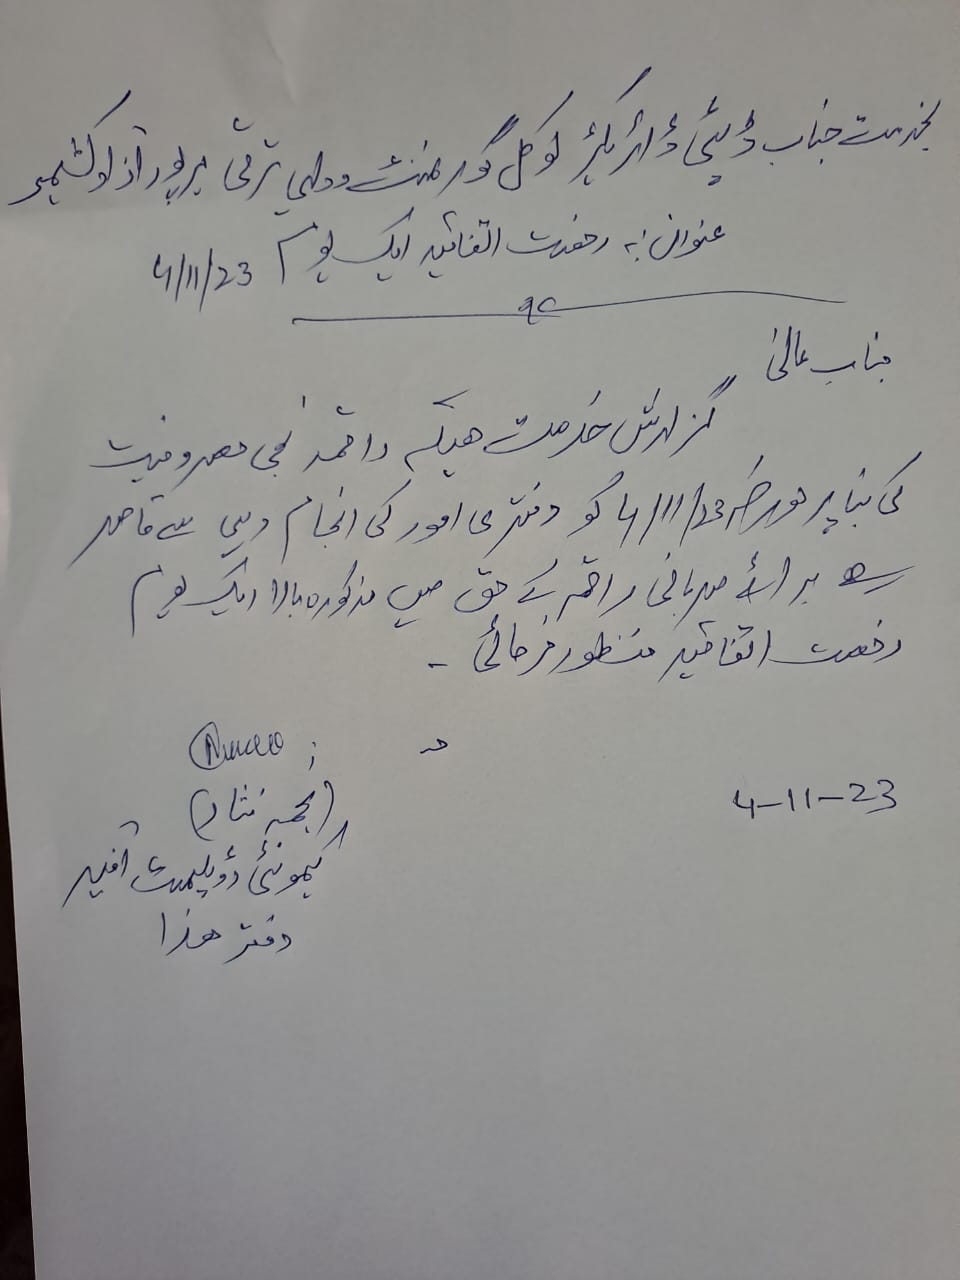 بخدمت جناب ڈپٹی ڈائریکٹر لوکل گورنمنٹ ودیہی ترقی میرپور آزادکشمیر
عنوان:۔ رخصت اتفاقیہ ایک یوم 4/11/23
جناب عالیٰ
گزارش خدمت ھیکہ راقمہ نجی مصروفیت
کی بنا پر مورخہ 4/11/23 کو دفتری امور کی انجام دہی سے قاصر
ہے برائے مہربانی راقمہ کے حق میں مذکورہ بالا ایک یوم
رخصت اتفاقیہ منظور فرمائی ۔
4-11-23
(نجمہ نثار)
کیمونٹی ڈویلپمنٹ آفیسر
دفتر ھذا